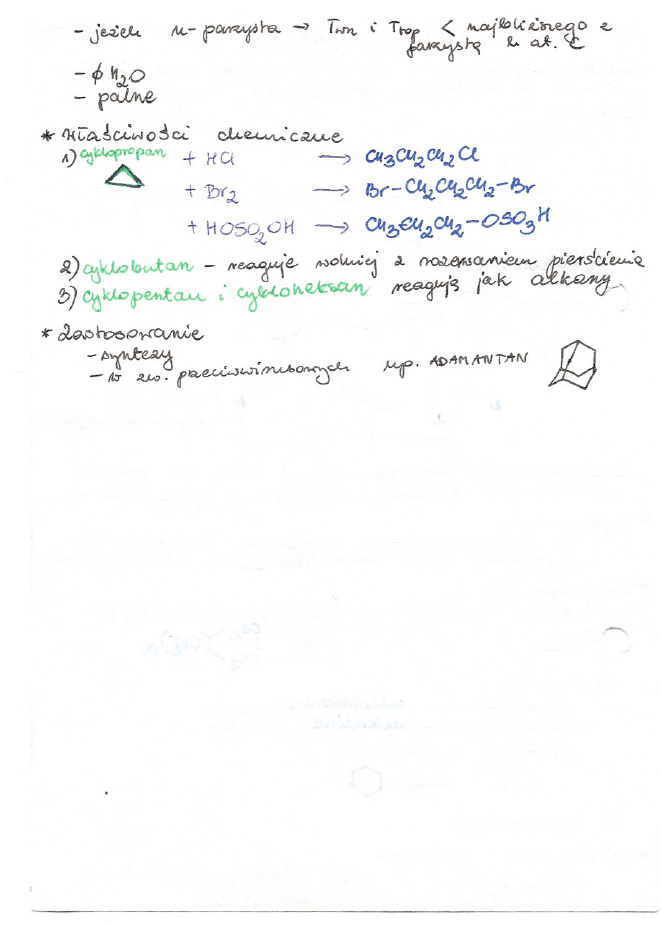 - jeżeli n-parzysta → Twn i Ttop < najbliższego z
parzystą l. at. C
- ϕ H2O
- palne
* Właściwości chemiczne
1) cyklopropan + HCl → CH3CH2CH2Cl
+ Br2 → Br-CH2CH2CH2-Br
+ HOSO2OH → CH3CH2CH2-OSO3H
2) cyklobutan - reaguje wolniej z rozerwaniem pierścienia
3) cyklopentan i cykloheksan reagują jak alkany
* Zastosowanie
- syntezy
- w zw. przeciwwirusowych np. ADAMANTAN